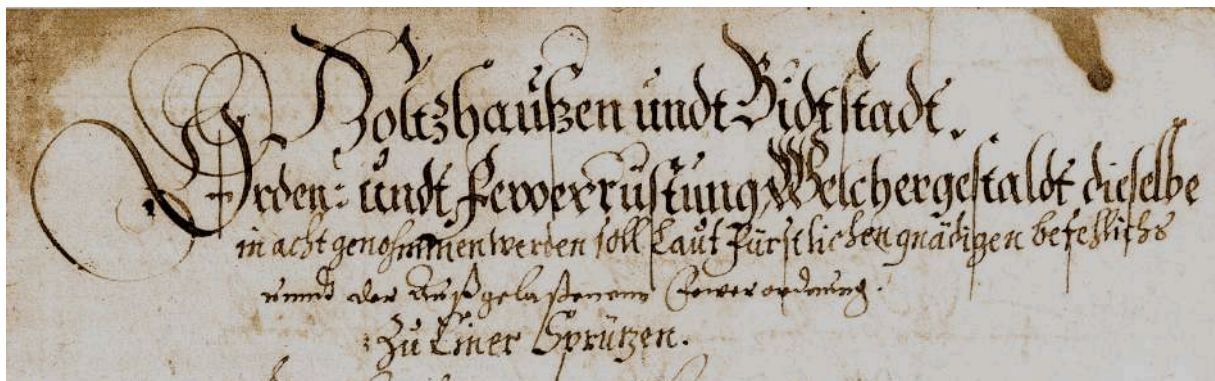 Holtzhaußen undt Bidtstadt.
Orden: undt Fewerrüstung Welchergestaldt dieselbe
in acht genohmmen werden soll Laut Fürstlichen gnädigen befehlichs
unndt der Außgelaßenenn Fewerordnung.
Zu Einer Sprützen.